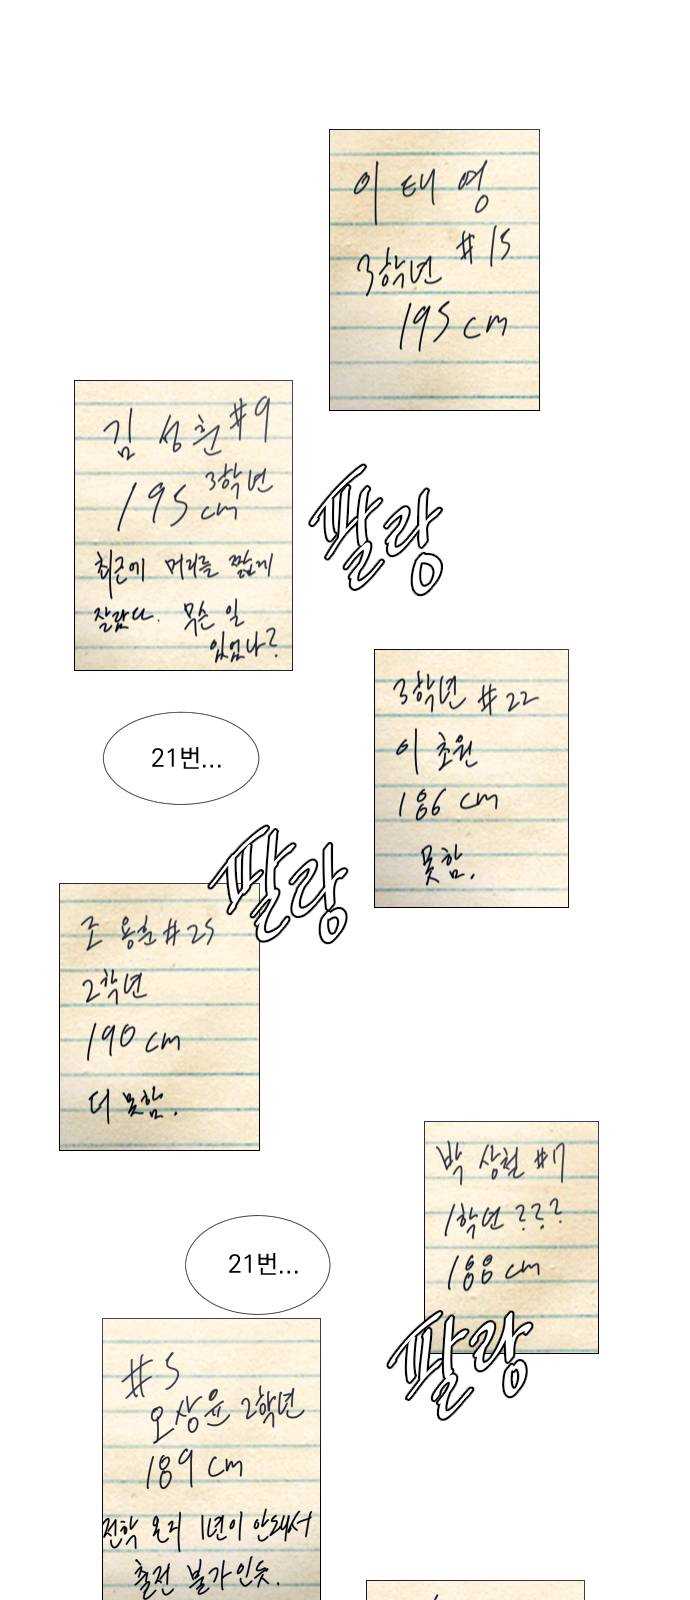 이태영
#15
3학년
195cm
김성훈 #9
3학년
195cm
최근에 머리를 짧게
잘랐다. 무슨 일
있었나?
팔랑
3학년 #22
이초원
186cm
못함.
21번...
팔랑
조용훈 #25
2학년
190cm
더 못함.
박상철 #7
1학년???
188cm
21번...
팔랑
#5
오상윤 2학년
189cm
전학 온지 1년이 안돼서
출전 불가인듯.